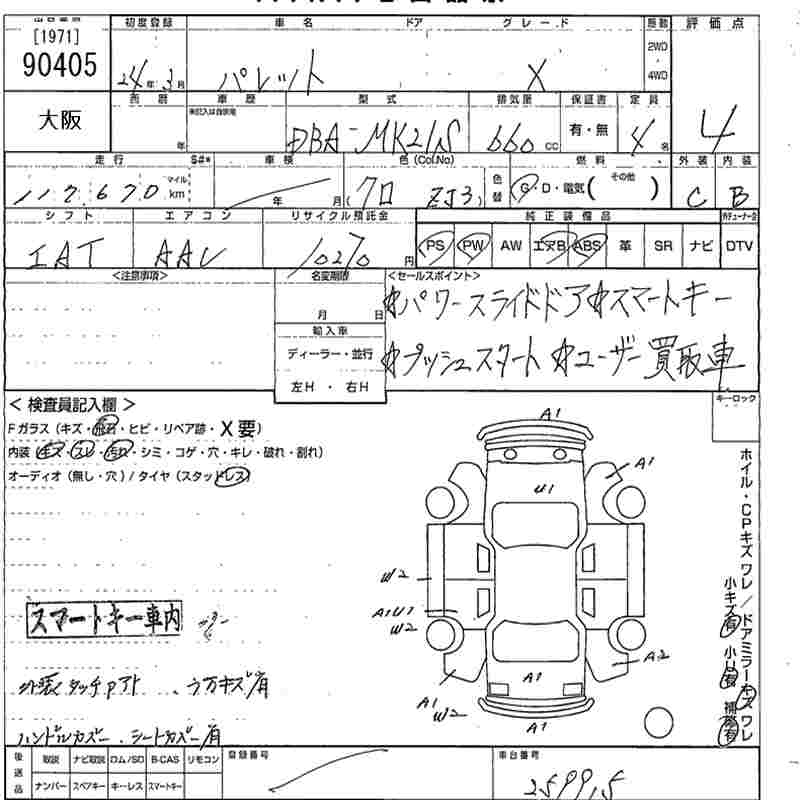 初度登録 車名 ドア グレード 駆動 評価点
[1971]
90405
24年3月 パレット X 2WD 4WD
大阪
西暦 車歴 型式 排気量 保証書 定員
年 DBA-MK21S 660cc 有・無 4名 4
走行 S#* 車検 色(Col.No) 色替 燃料 その他 外装 内装
117,670 マイル km 年 月 (クロ ZJ3) G・D・電気( ) C B
シフト エアコン リサイクル預託金 純正装備品
IAT AAC 10270円 PS PW AW エアB ABS 革 SR ナビ DTV
<注意事項> 名変期限 <セールスポイント>
月 日 ☆パワースライドドア☆スマートキー
輸入車
ディーラー・並行 ☆プッシュスタート ☆ユーザー買取車
左H・右H
<検査員記入欄> キーロック
Fガラス(キズ・飛石・ヒビ・リペア跡・X要)
内装(キズ・スレ・汚れ・シミ・コゲ・穴・キレ・破れ・割れ)
オーディオ(無し・穴)/タイヤ(スタッドレス)
A1
A1
U1
W2
A1U1
W2
A2
A1
A1
W2
A1
ホイル・CPキズ ワレ/ドアミラーキズ ワレ
小キズ有 小U有 補修有
スマートキー車内
外装タッチアト、うすキズ有
ハンドルカバー、シートカバー有
後送品 取説 ナビ取説 ロム/SD B-CAS リモコン 登録番号 車台番号
ナンバー スペアキー キーレス スマートキー 259915